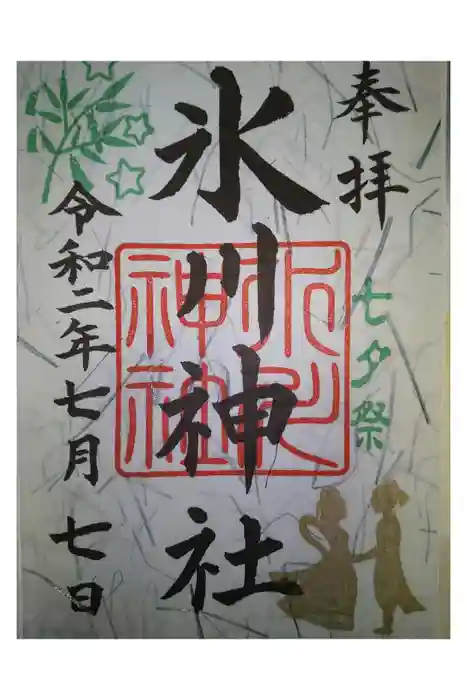 奉拝
七夕祭
氷川神社
令和二年七月七日